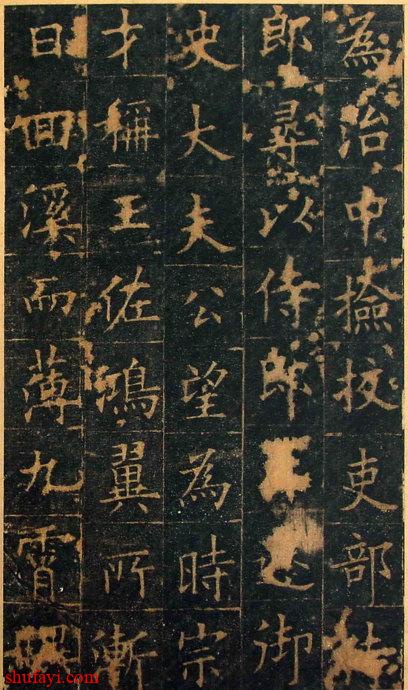 為治中撿挍吏部侍
郎尋以侍郎兼御
史大夫公望為時宗
才稱王佐鴻翼所漸
日回溪而薄九霄
shufayi.com